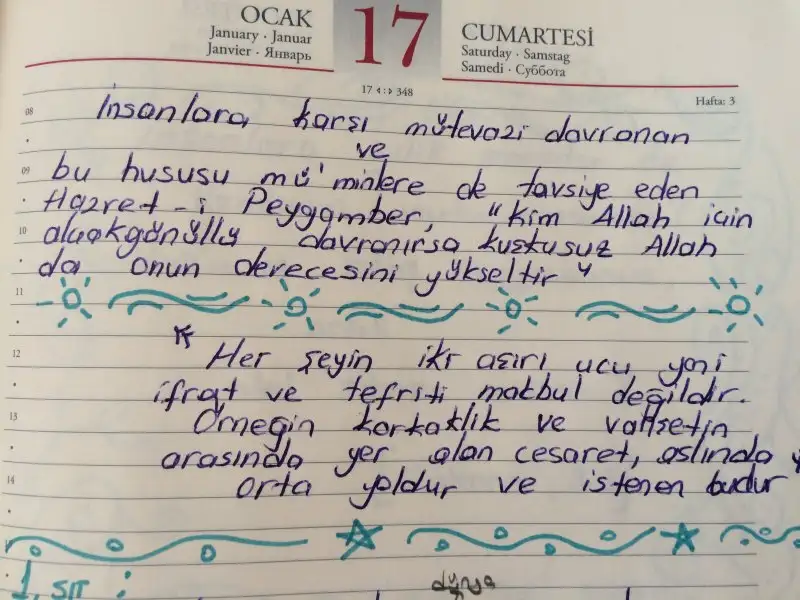 OCAK
January · Januar
Janvier · Январь
17
CUMARTESİ
Saturday · Samstag
Samedi · Суббота
17 348
Hafta: 3
08
İnsanlara karşı mütevazi davranan
ve
09
bu hususu mü'minlere de tavsiye eden
Hazret-i Peygamber, "Kim Allah için
10
alçakgönüllü davranırsa kuşkusuz Allah
da onun derecesini yükseltir"
11
12
Her şeyin iki aşırı ucu yani
ifrat ve tefriti makbul değildir.
13
Örneğin korkaklık ve vahşetin
arasında yer alan cesaret, aslında
14
orta yoldur ve istenen budur
1. SIT :